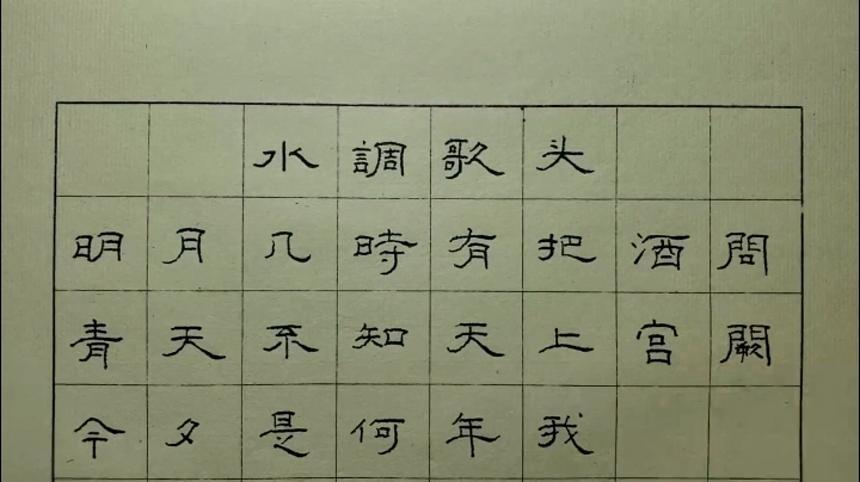 水調歌头
明月几時有把酒問
青天不知天上宫闕
今夕是何年我